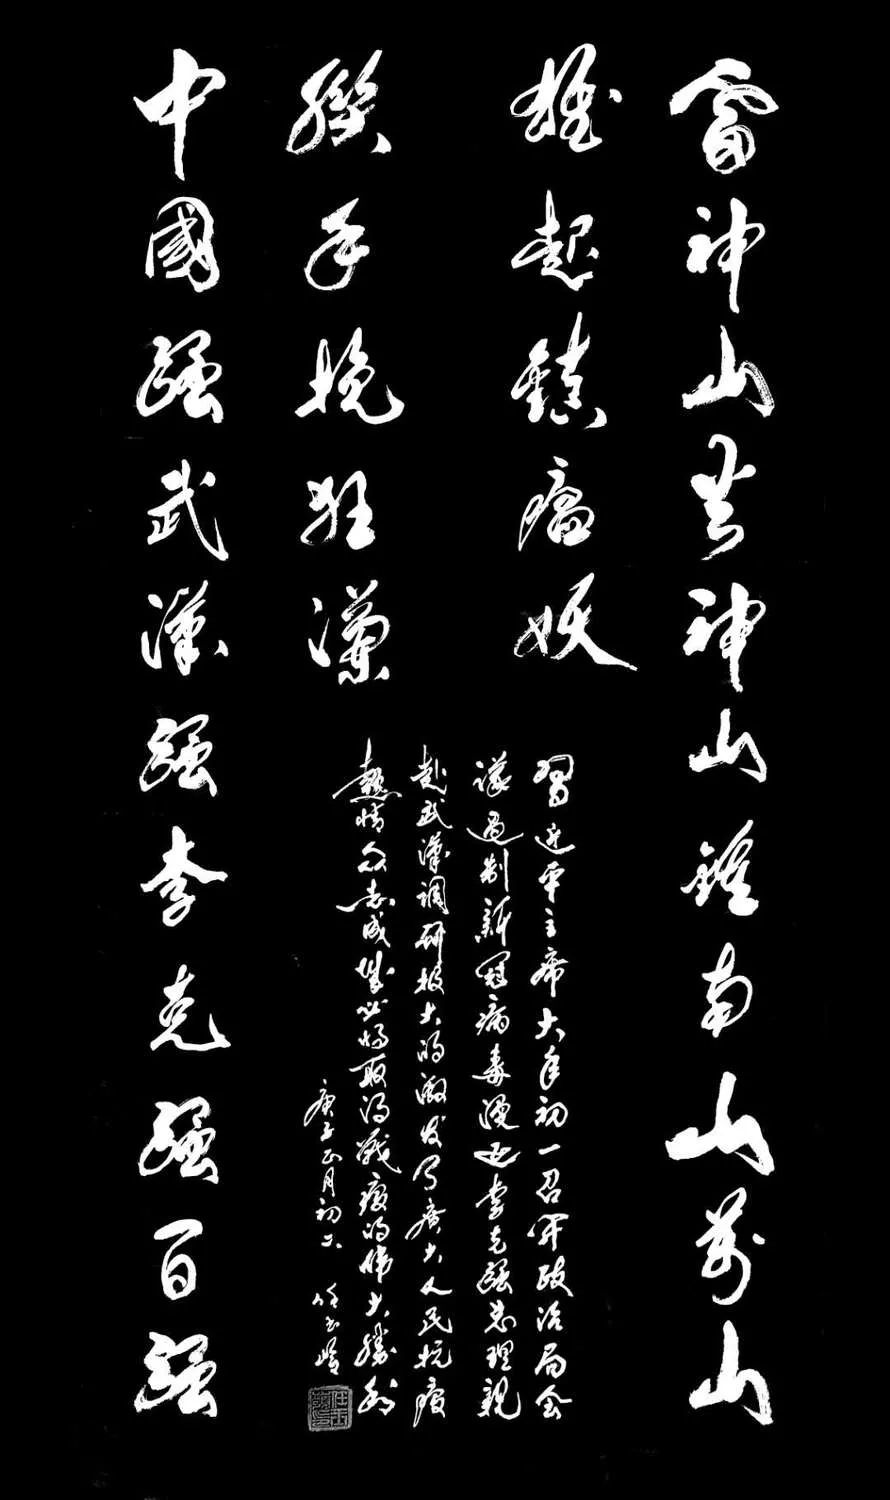 雷神山神山鍾南山萬山
雄起鎮瘟妖
中國強武漢強李克強百強
聯手挽狂瀾
習近平主席大年初一召開政治局會
議遏制新冠病毒漫延李克強總理親
赴武漢調研极大的激发了廣大人民抗疫
熱情众志成城必將取得戰疫的偉大勝利
庚子正月初六 任玉嶺